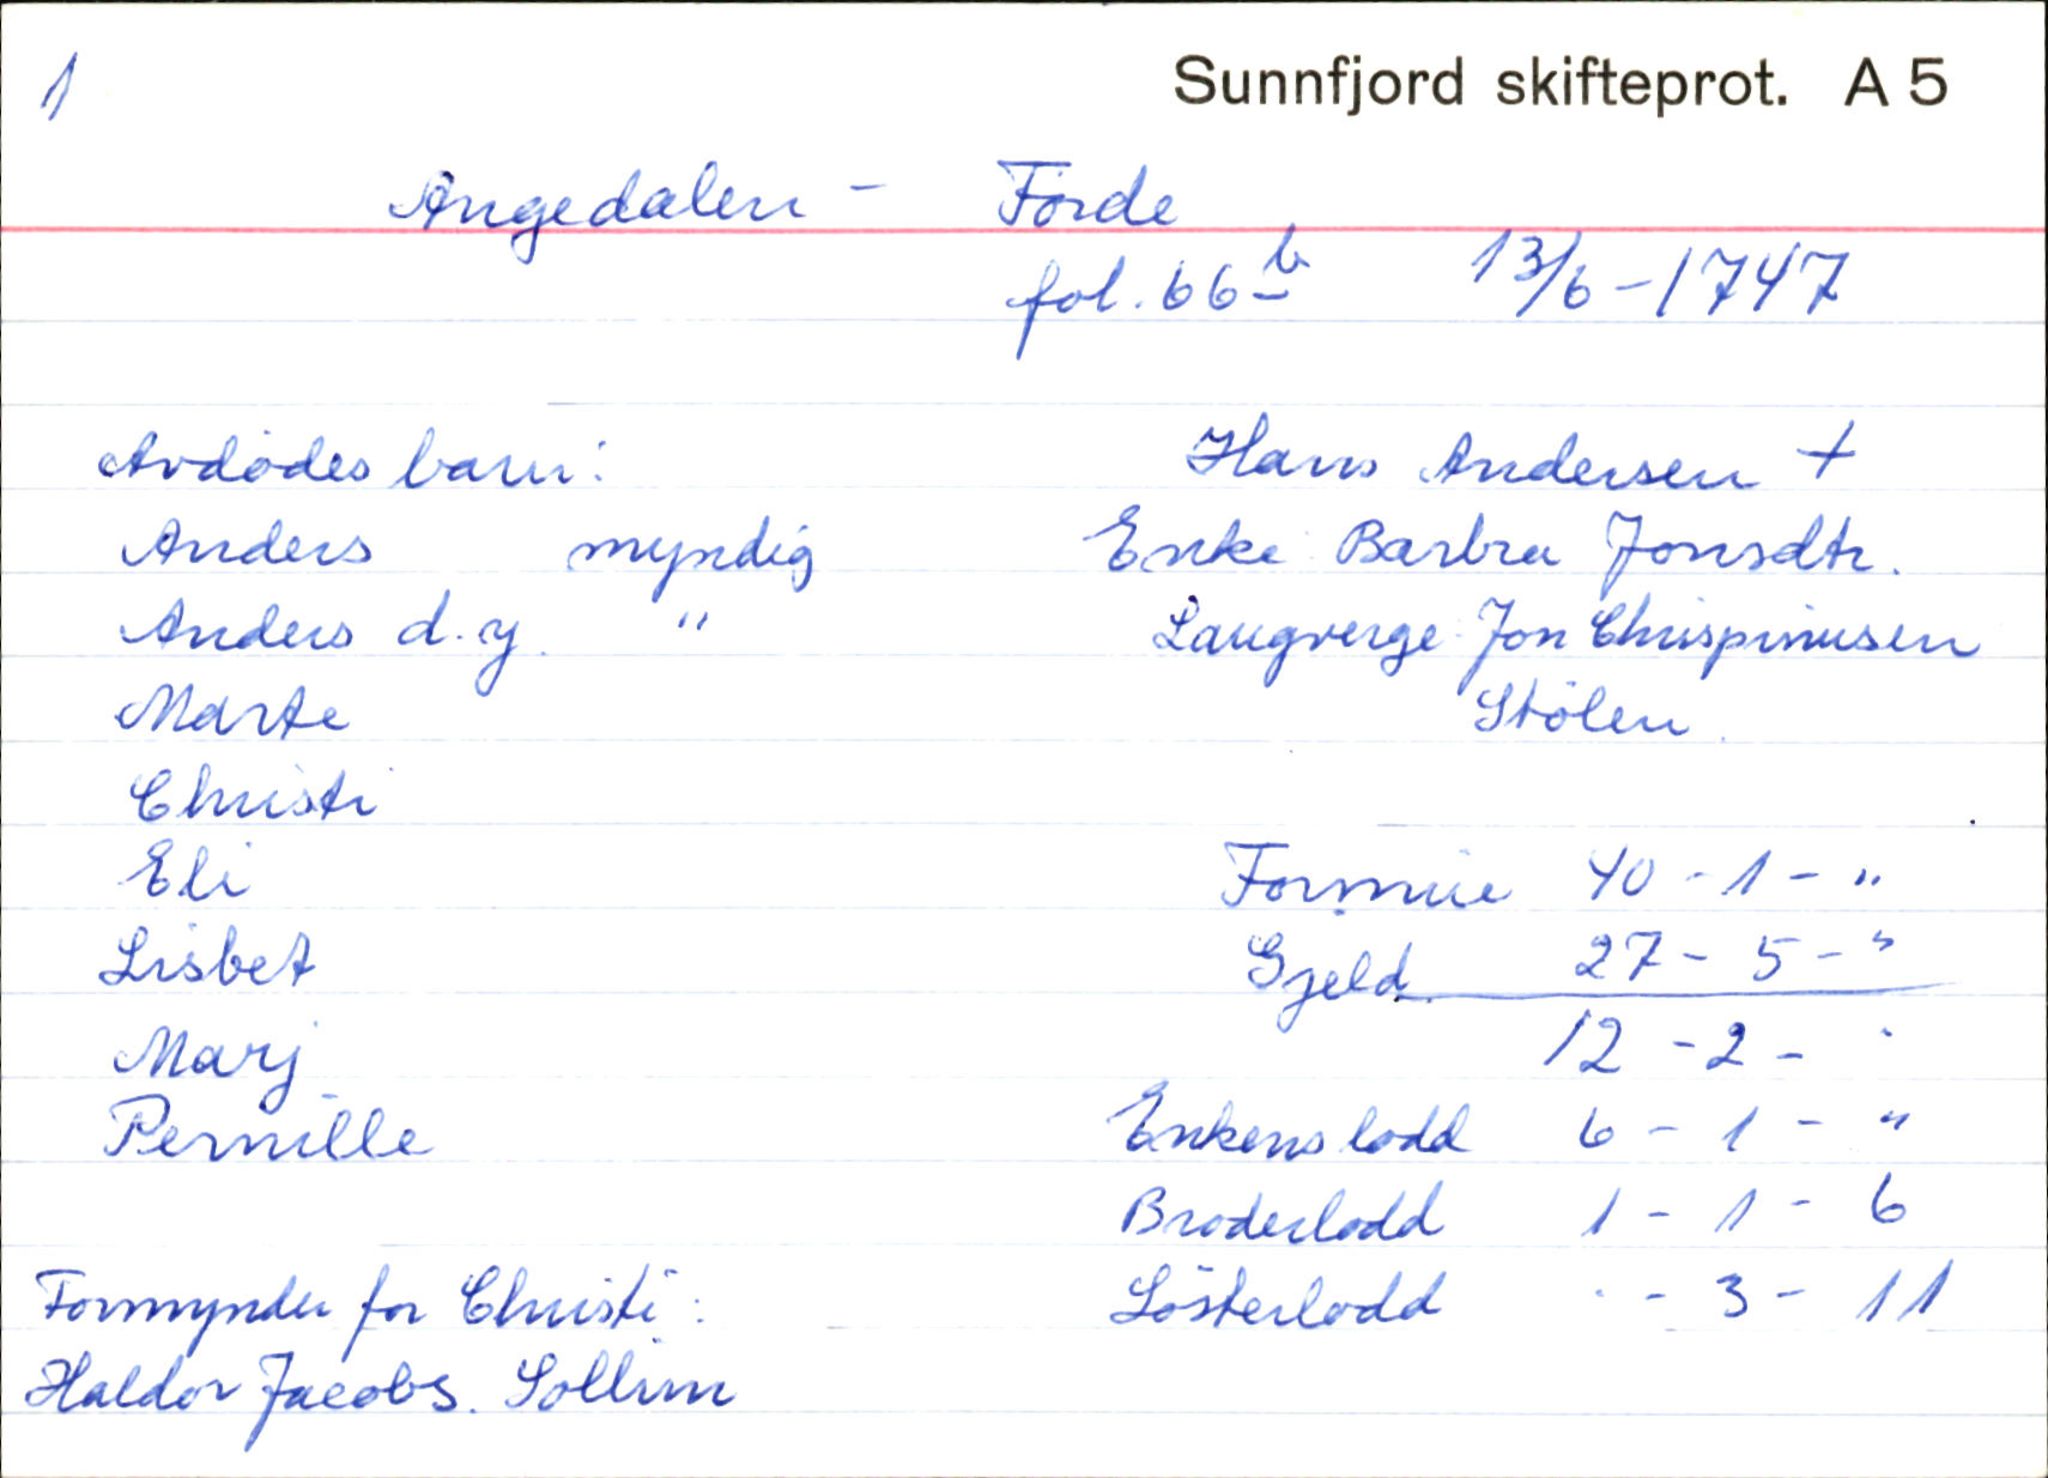 1
Sunnfjord skifteprot. A 5
Angedalen - Förde
fol. 66b 13/6-1747
Avdödes barn:
Anders myndig
Anders d.y. "
Marte
Christi
Eli
Lisbet
Marj
Pernille
Formynder for Christi:
Haldor Jacobs. Sollim
Hans Andersen +
Enke Barbra Jonsdtr.
Laugverge Jon Chrispinusen
Stölen
Formue 40 - 1 - "
Gjeld 27 - 5 - "
12 - 2 -
Enkens lodd 6 - 1 - "
Broderlodd 1 - 1 - 6
Sösterlodd - 3 - 11